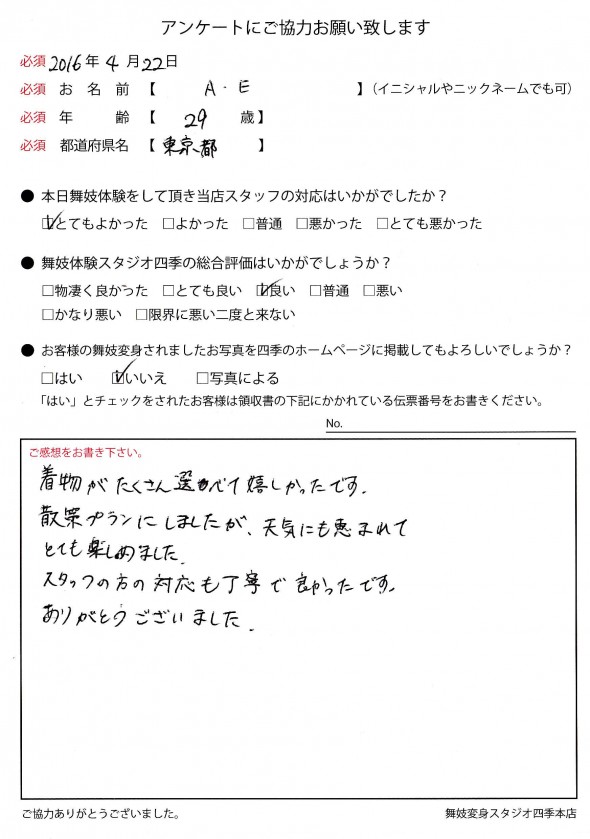 アンケートにご協力お願い致します
必須 2016年 4月 22日
必須 お名前 【 A・E 】(イニシャルやニックネームでも可)
必須 年齢 【 29 歳】
必須 都道府県名 【 東京都 】
● 本日舞妓体験をして頂き当店スタッフの対応はいかがでしたか?
☑とてもよかった □よかった □普通 □悪かった □とても悪かった
● 舞妓体験スタジオ四季の総合評価はいかがでしょうか?
□物凄く良かった □とても良い ☑良い □普通 □悪い
□かなり悪い □限界に悪い二度と来ない
● お客様の舞妓変身されましたお写真を四季のホームページに掲載してもよろしいでしょうか?
□はい ☑いいえ □写真による
「はい」とチェックをされたお客様は領収書の下記にかかれている伝票番号をお書きください。
No.
ご感想をお書き下さい。
着物がたくさん選べて嬉しかったです.
散策プランにしましたが、天気にも恵まれて
とても楽しめました.
スタッフの方の対応も丁寧で良かったです.
ありがとうございました.
ご協力ありがとうございました。
舞妓変身スタジオ四季本店